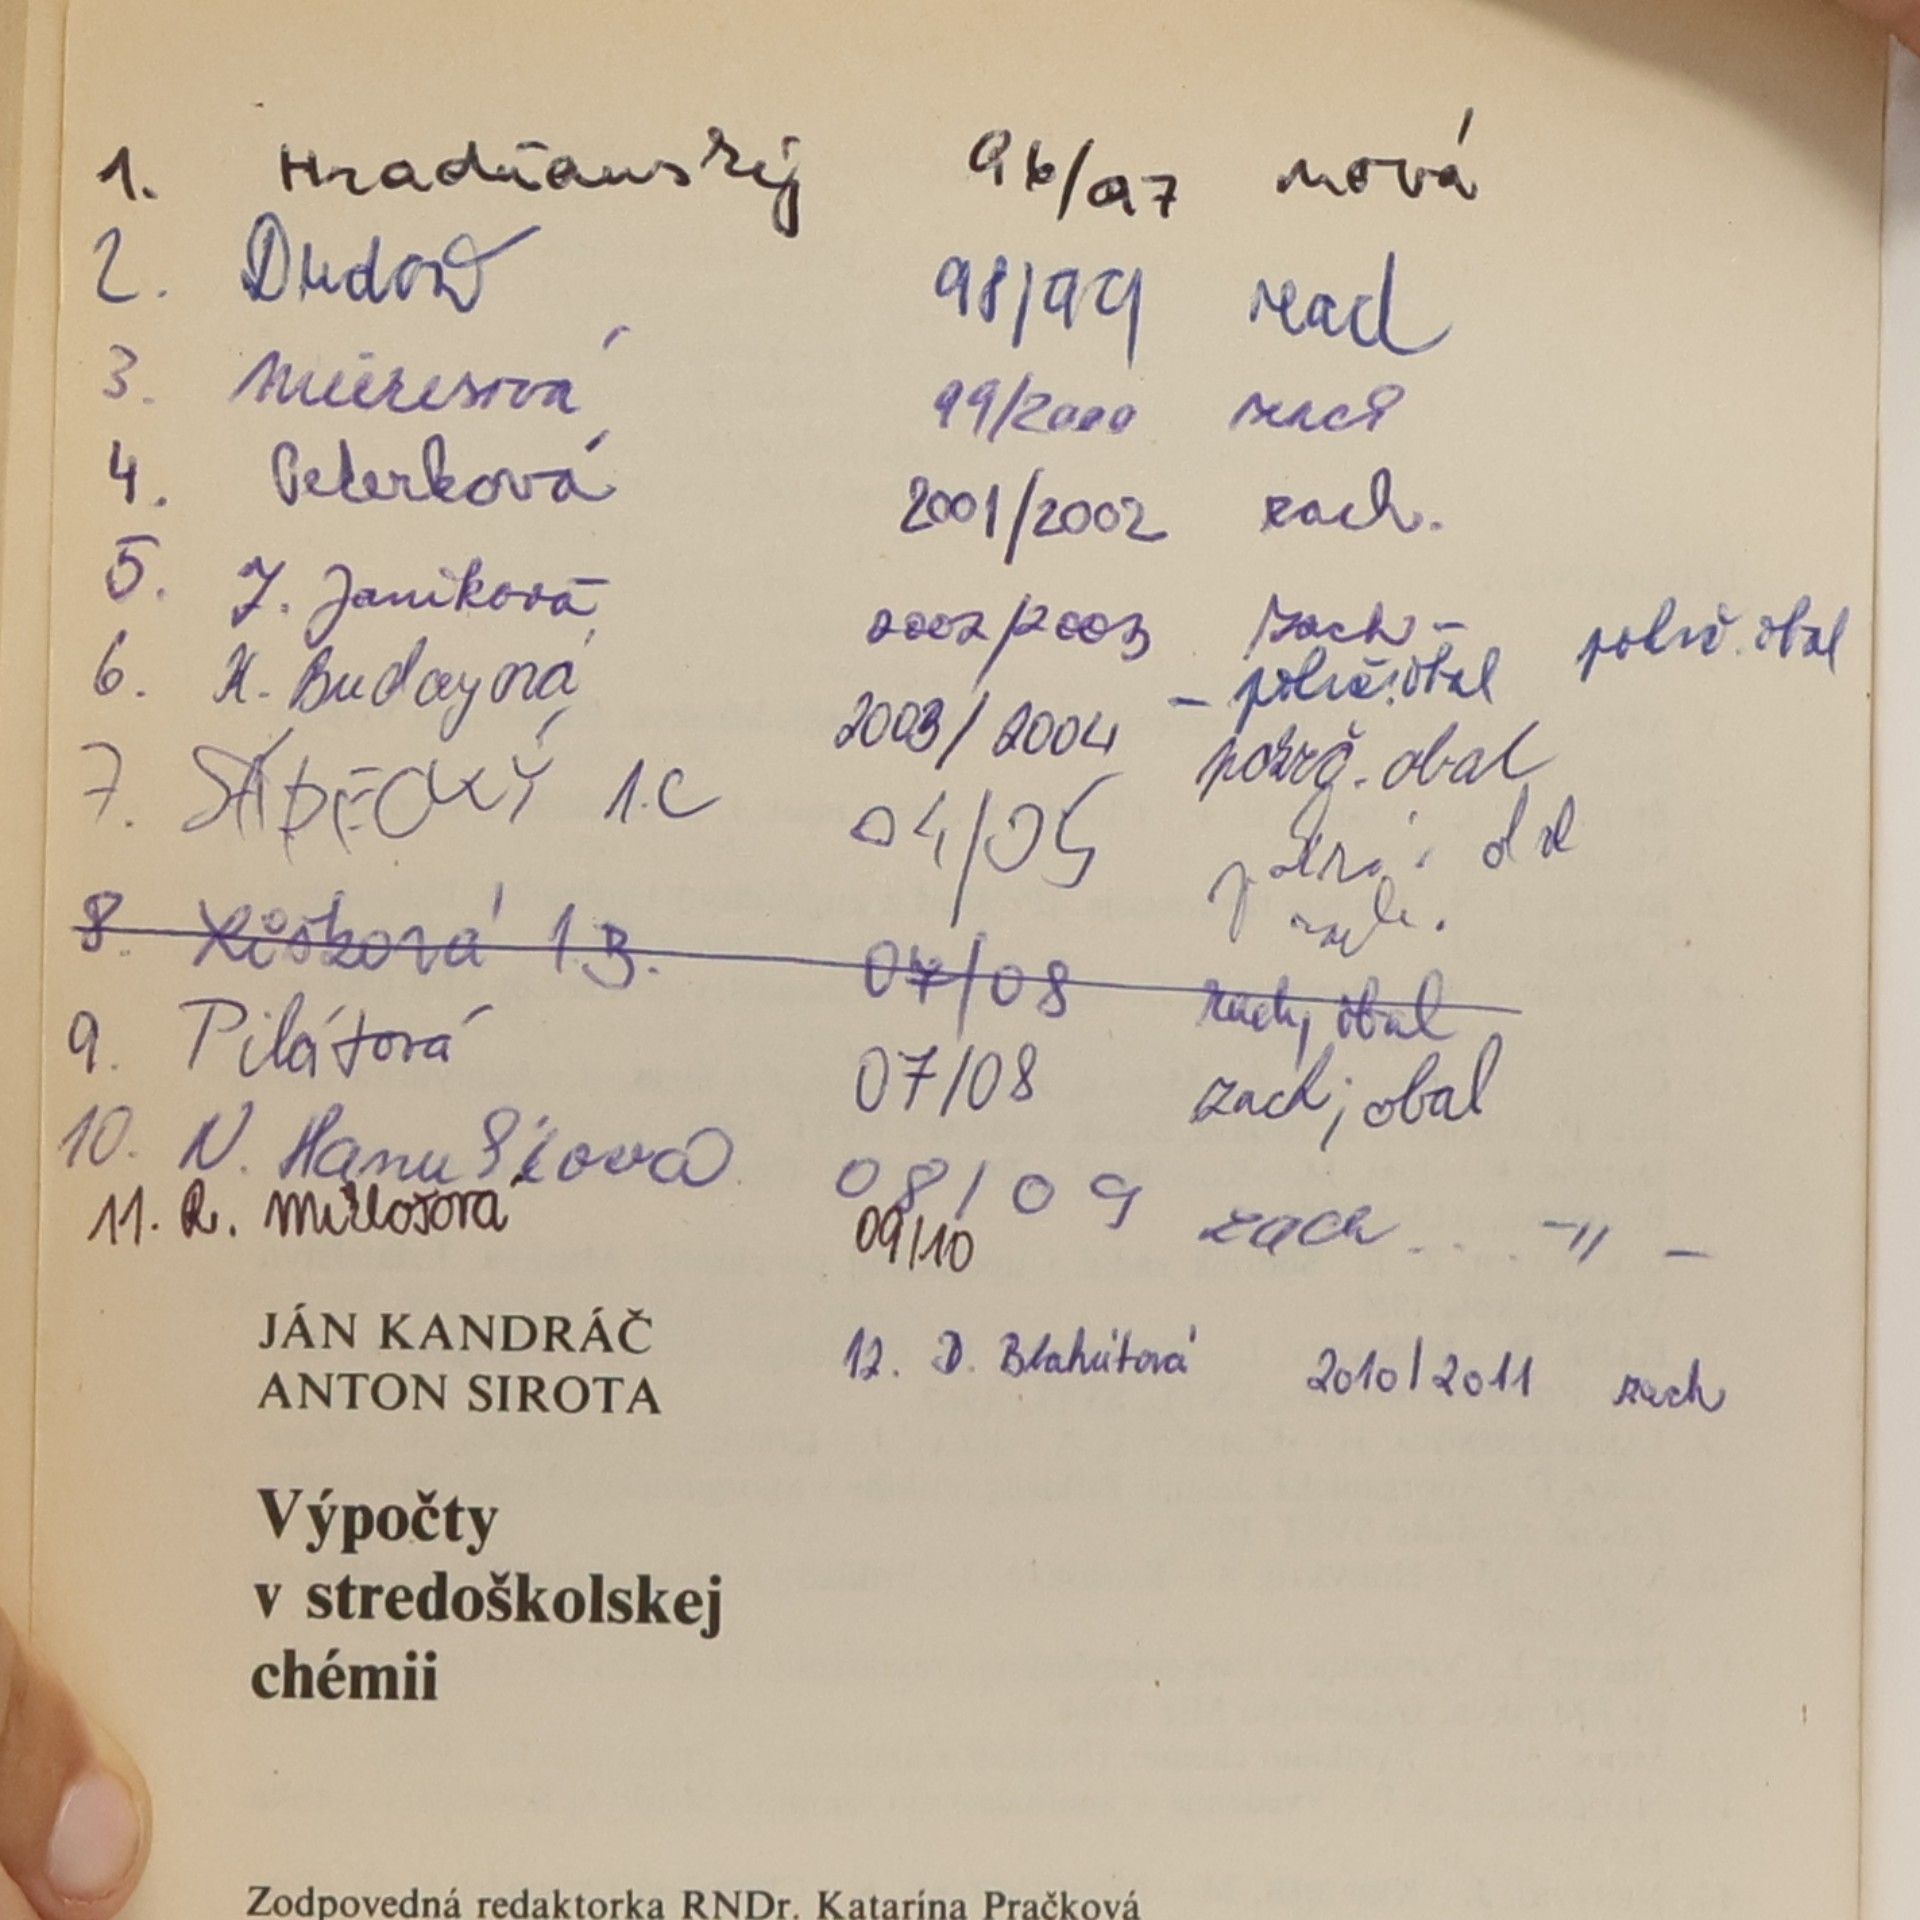 1. Hradňanský 96/97 nová
2. 98/99 zach
3. 99/2000 zach
4. Peterková 2001/2002 zach.
5. J. Janíková 2002/2003 zach - poškč. obal
6. K. Budayová 2003/2004 - poškč. obal
poškč. obal
7. SÁDECKÝ 1.C 04/05 obal
zach.
8. Líšková 1.B. 07/08 zach, obal
9. Pilátová 07/08 zach, obal
10. N. Hanušková 08/09 zach - 〃 -
11. R. Millošová 09/10
JÁN KANDRÁČ
ANTON SIROTA
12. D. Blahútová 2010/2011 zach
Výpočty
v stredoškolskej
chémii
Zodpovedná redaktorka RNDr. Katarína Pračková